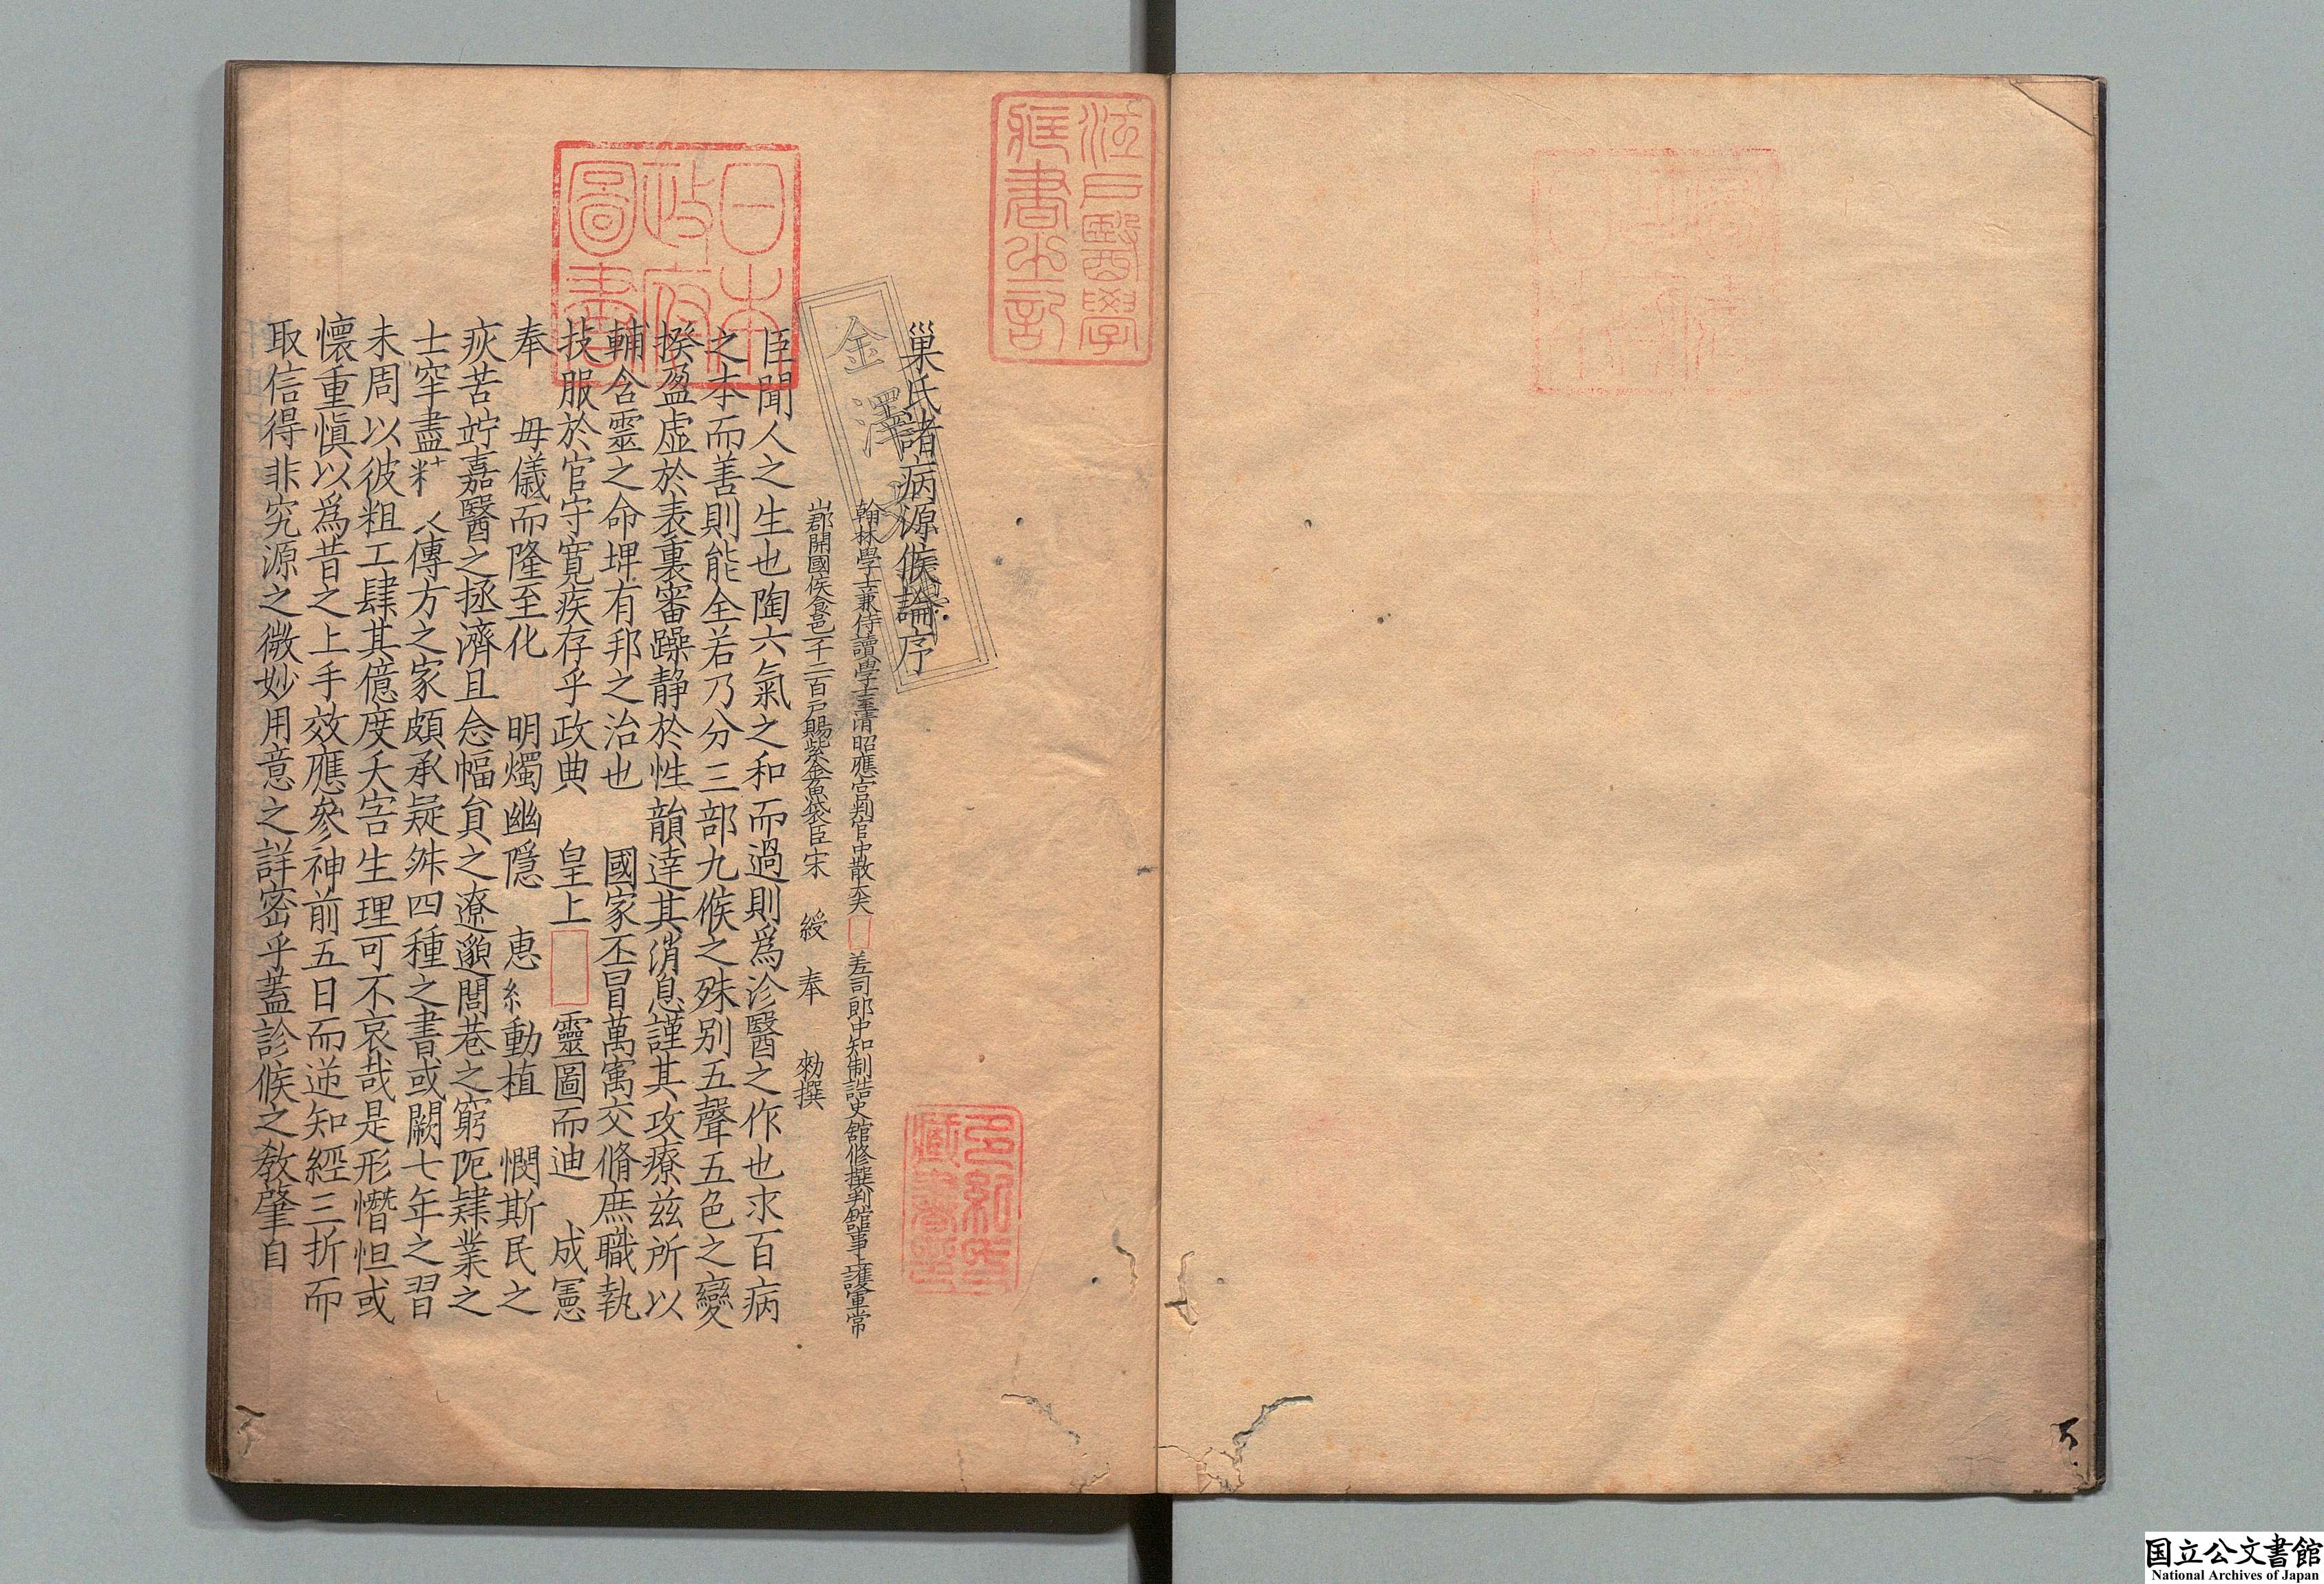 巢氏諸病源候論序
翰林學士兼侍讀學士玉清昭應宮判官中散大夫 差司郎中知制誥史舘修撰判舘事上護軍常
山郡開國侯食邑一千二百戸賜紫金魚袋臣宋 綬 奉 勑撰
臣聞人之生也陶六氣之和而過則爲沴醫之作也求百病
之本而善則能全若乃分三部九候之殊别五聲五色之變
揆盈虚於表裏審躁静於性韻達其消息謹其攻療兹所以
輔含靈之命埤有邦之治也 國家丕冒萬㝢交脩庶職執
技服於官守寛疾存乎政典 皇上 靈圖而迪 成憲
奉 毋儀而隆至化 明燭幽隱 恵 動植 憫斯民之
疾苦竚嘉醫之拯濟且念幅貟之遼邈閭巷之窮阨肄業之
士罕盡 傳方之家頗承疑舛四種之書或闕七年之習
未周以彼粗工肆其億度夭害生理可不哀哉是形憯怛或
懷重愼以爲昔之上手效應參神前五日而逆知經三折而
取信得非究源之微妙用意之詳密乎蓋診候之教肇自
金澤文
日本政府圖書
江戸醫學蔵書之記
多紀氏藏書印
国立公文書館
National Archives of Japan